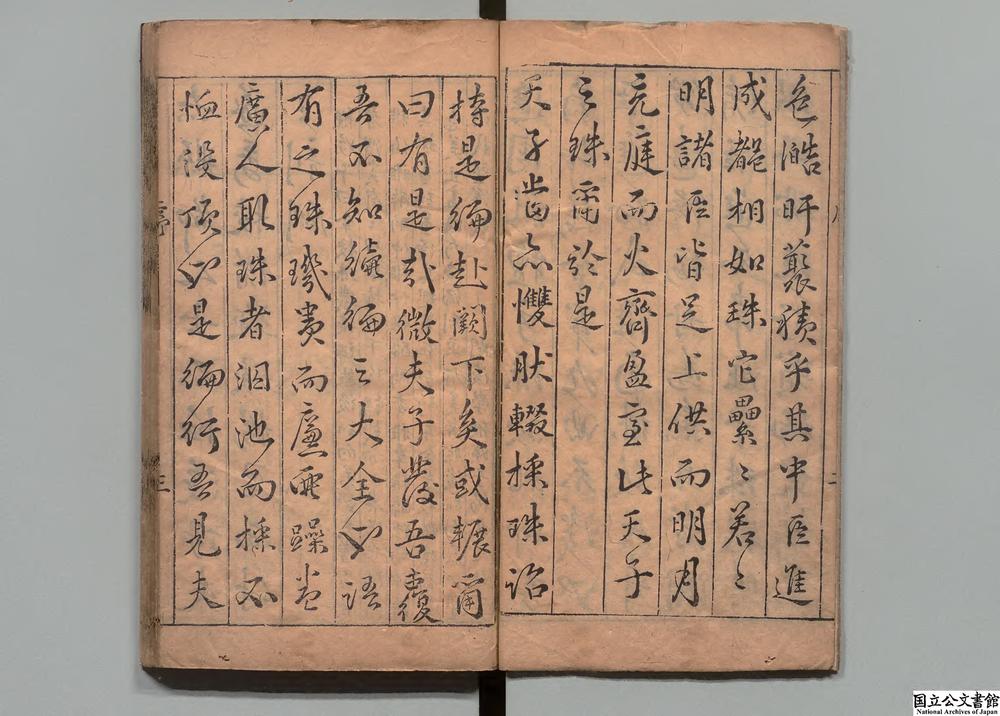 色澔旰藂積乎其中臣進
成都相如珠它纍〻若〻
明諸臣皆足上供而明月
充庭而火齊盈室此天子
之珠爾於是
天子亦輟採珠詔
二
持是編赴闕下矣或囅爾
曰有是哉微夫子發吾覆
吾不知續編之大全也語
有之珠璣貴而廉躁
廣人取珠者汨池而採不
恤沒頂也是編行吾見夫
序
三
国立公文書館
National Archives of Japan